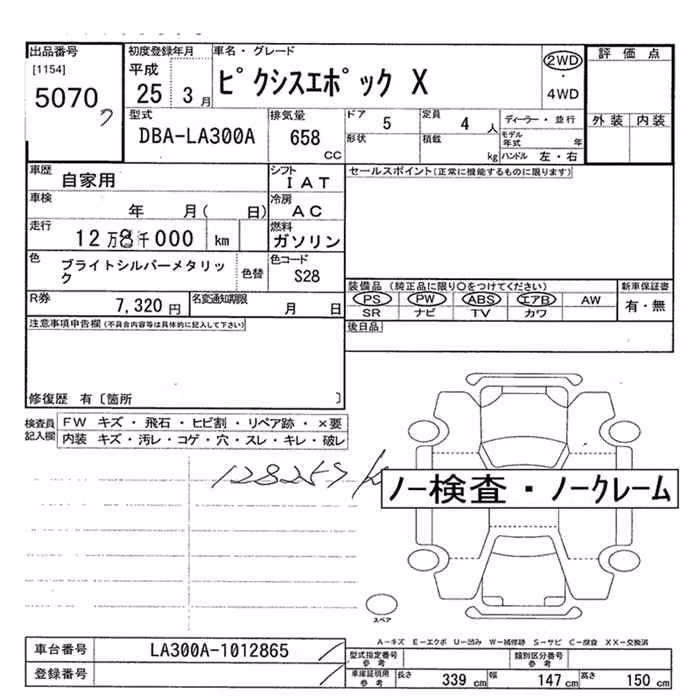 出品番号
[1154]
5070
初度登録年月
平成
25 3月
車名・グレード
ピクシスエポック X
2WD
・
4WD
評価点
外装 内装
型式
DBA-LA300A
排気量
658
CC
ドア 5
定員 4 人
形状
積載 kg
ディーラー・並行
モデル年式 年
ハンドル 左・右
車歴 自家用
シフト IAT
車検 年 月( 日)
冷房 AC
走行 12万8千000 km
燃料 ガソリン
色 ブライトシルバーメタリック
色替
色コード S28
R券 7,320円
名変通知期限 月 日
セールスポイント(正常に機能するものに限ります)
装備品 (純正品に限り○をつけてください)
PS PW ABS エアB AW
SR ナビ TV カワ
新車保証書
有・無
後日品
注意事項申告欄(不具合内容等は具体的に記入して下さい)
修復歴 有〔箇所 〕
検査員記入欄
FW キズ・飛石・ヒビ割・リペア跡・×要
内装 キズ・汚レ・コゲ・穴・スレ・キレ・破レ
128257k
ノー検査・ノークレーム
スペア
A-キズ E-エクボ U-凹み W-補修跡 S-サビ C-腐食 XX-交換済
車台番号 LA300A-1012865
登録番号
型式指定番号 参考
類別区分番号 参考
車庫証明用 参考
長さ 339cm 幅 147cm 高さ 150cm